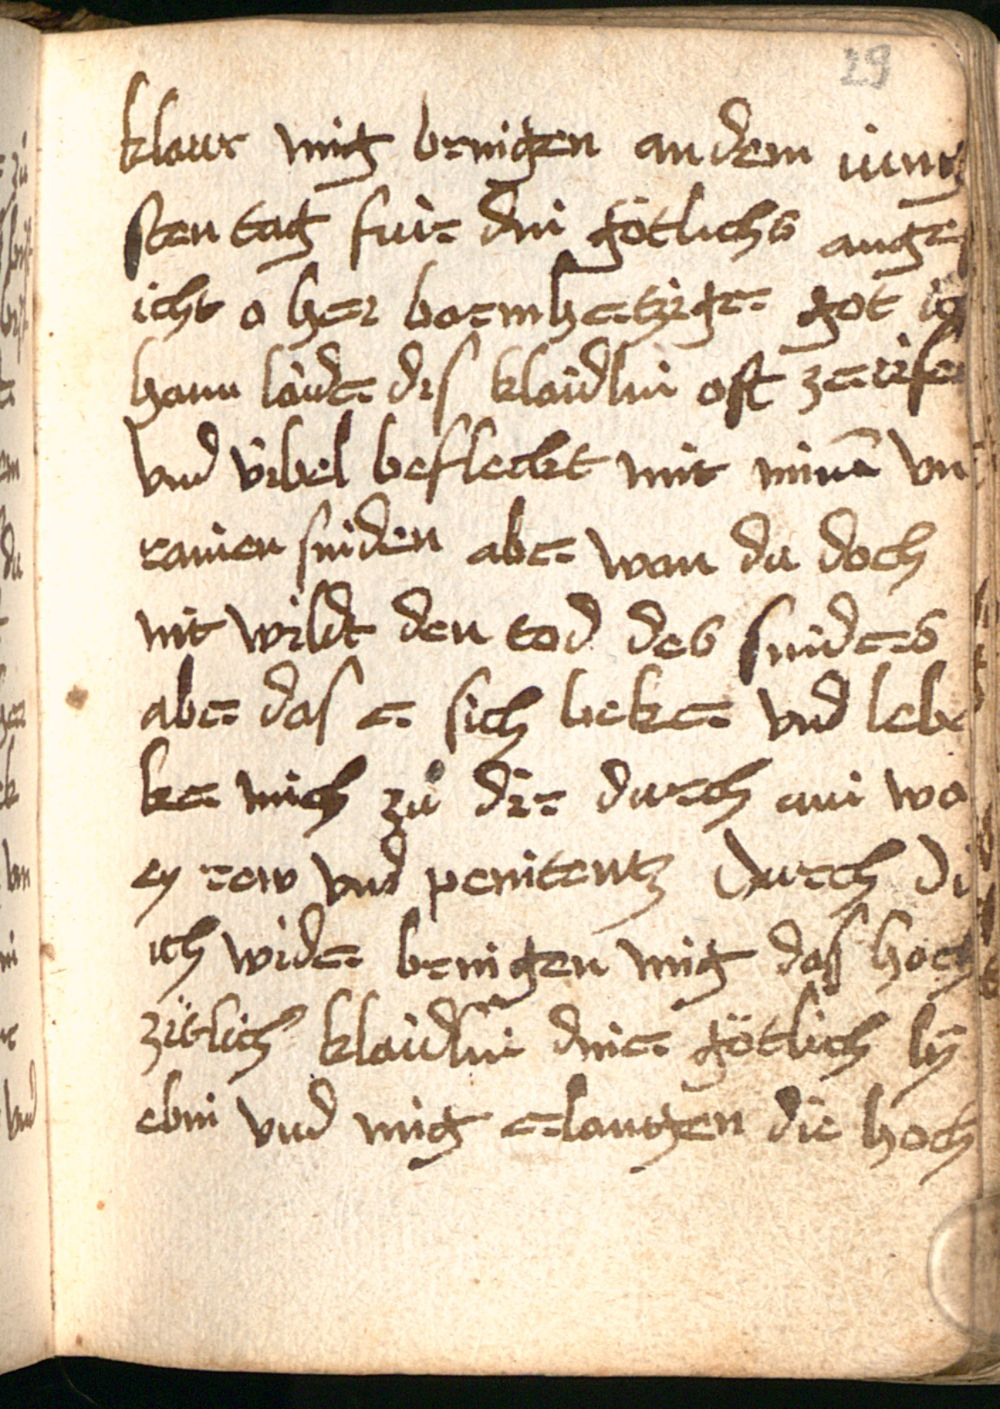 29
klaur mig bringen an dem iung
sten tag für din götlichs ange
icht o her barmhertziger got ich
hann laider dis klaidlin oft zerrisen
vnd übel befleckt mit minē vn
rainen sinden aber wan du doch
nit wildt den tod des sinders
aber das er sich beker vnd lebe
ker mich zů dir durch ain wa
ry rew vnd penitentz durch di
ich wider bringen mig das hoch
zitlich klaidlin diner götlich ly
ebin vnd mig erlangen die hoch